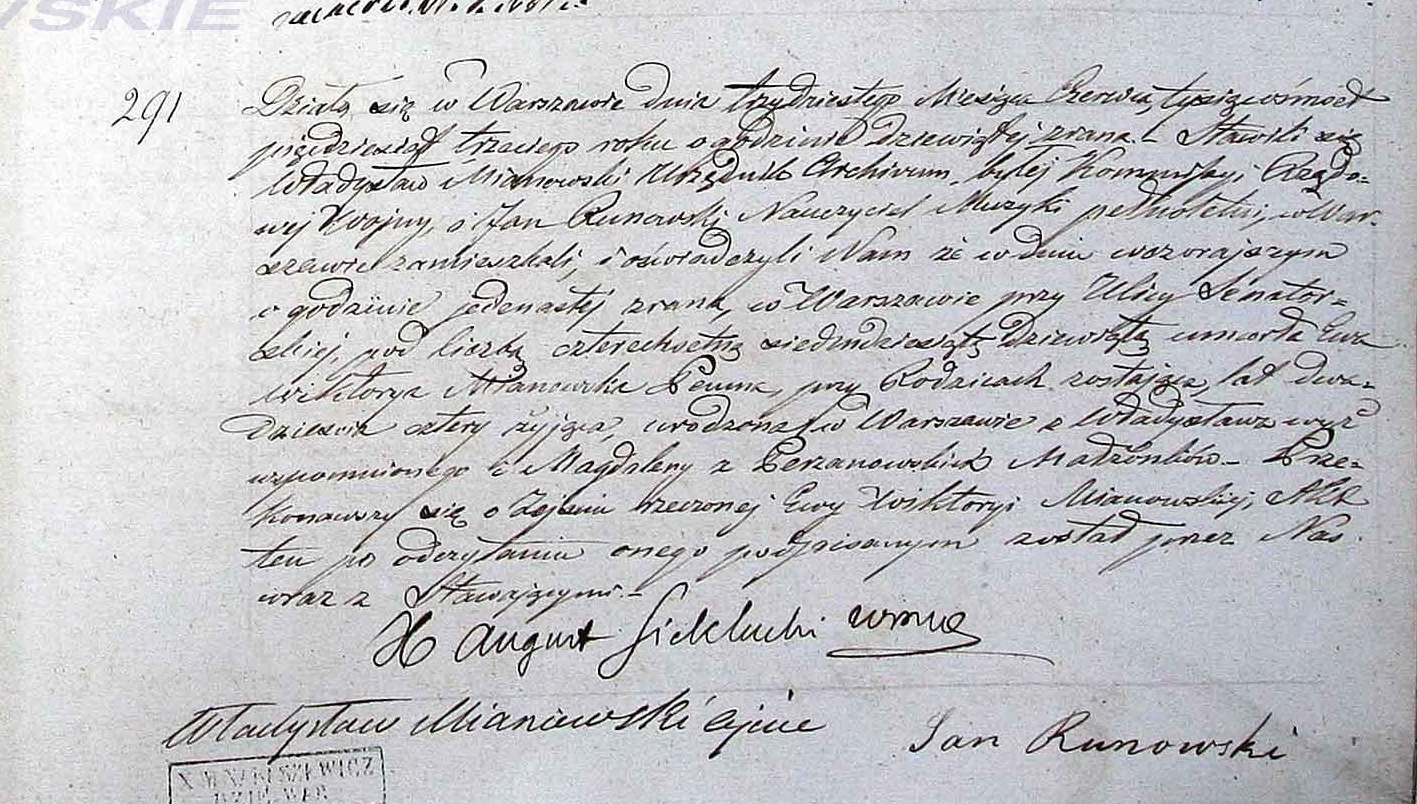 WSKIE
291
Działo się w Warszawie dnia trzydziestego Miesiąca Czerwca tysiąc ośmset
pięćdziesiąt trzeciego roku o godzinie dziewiątej zrana. – Stawili się
Władysław Mianowski Urzędnik Archivum byłej Kommissyi Rządo=
wej Wojny, i Jan Runowski Nauczyciel Muzyki pełnoletni, w War=
szawie zamieszkali, i oświadczyli Nam że w dniu wczorajszym
o godzinie jedenastej zrana, w Warszawie przy Ulicy Senator=
skiej, pod liczbą czterechsetną siedmdziesiątą dziewiątą umarła Ewa
Wiktorya Mianowska Panna, przy Rodzicach zostająca, lat dwa=
dzieścia cztery żyjąca, urodzona w Warszawie z Władysława wyż
wspomnionego i Magdaleny z Perzanowskich Małżonków – Prze=
konawszy się o zejściu rzeczonej Ewy Wiktoryi Mianowskiej, Akt
ten po odczytaniu onego podpisanym został przez Nas
wraz z Stawającymi. –
X August Sieklucki
Władysław Mianowski ojciec
Jan Runowski